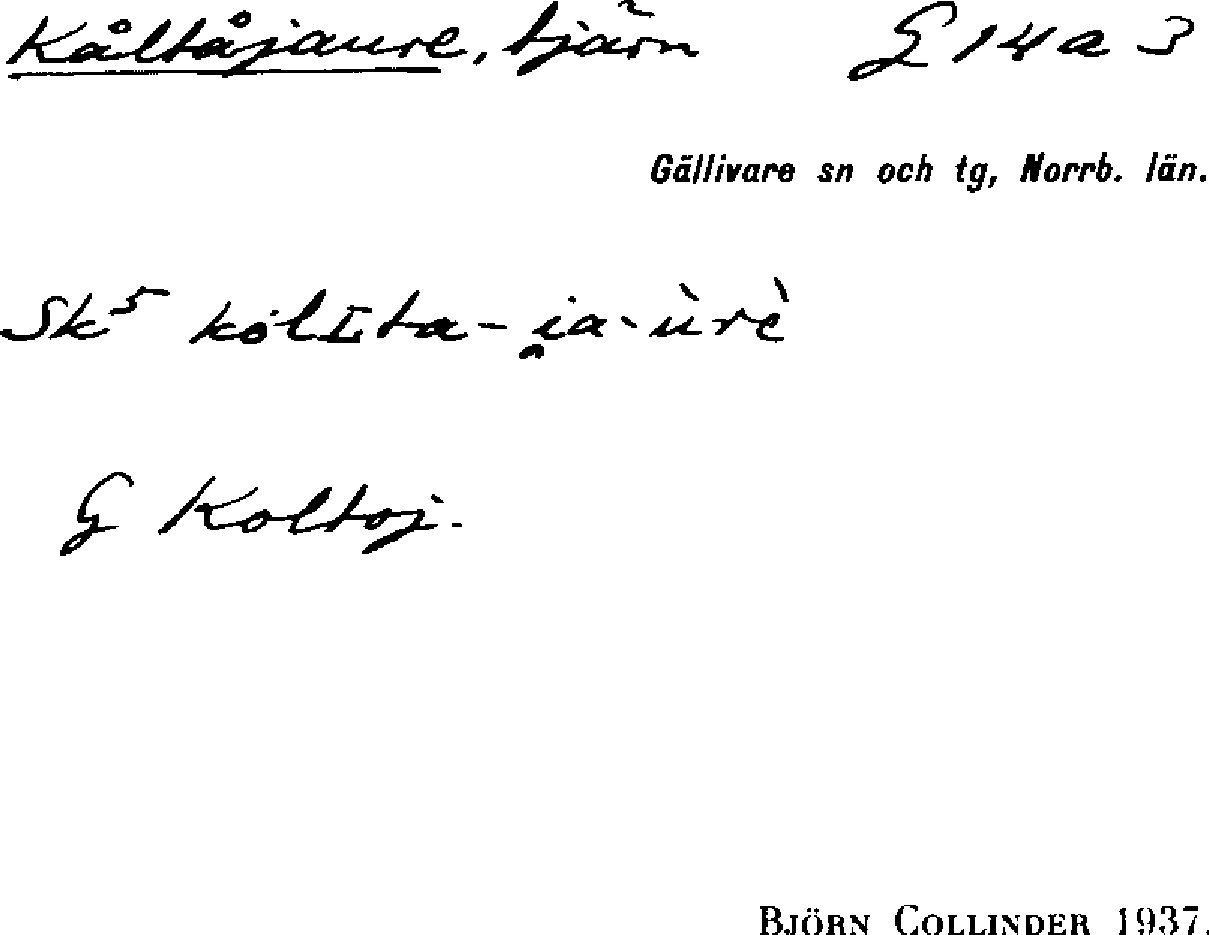 Kåltåjaure, tjärn G 14 a 3
Gällivare sn och tg, Norrb. län.
Sk⁵ kolɪta-i̯a·ùrè
G Koltoj.
BJÖRN COLLINDER 1937.